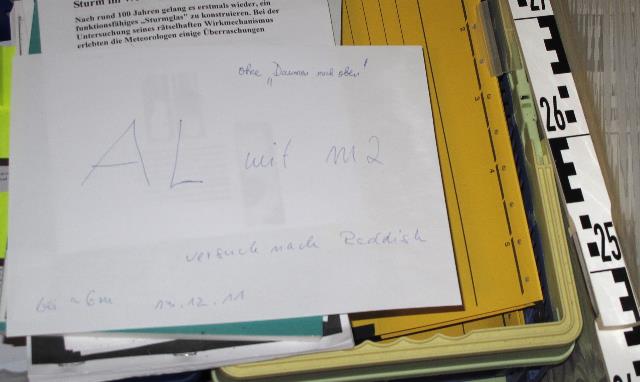 Sturm im
Nach rund 100 Jahren gelang es erstmals wieder, ein
funktionsfähiges „Sturmglas" zu konstruieren. Bei der
Untersuchung seines rätselhaften Wirkmechanismus
erlebten die Meteorologen einige Überraschungen
ohne „Daumen nach oben"
AL mit m2
versuch nach Reddish
bis ~ 6m 13.12.11
27
26
25